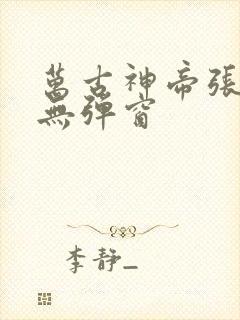 萬古神帝張
無彈窗
李靜_